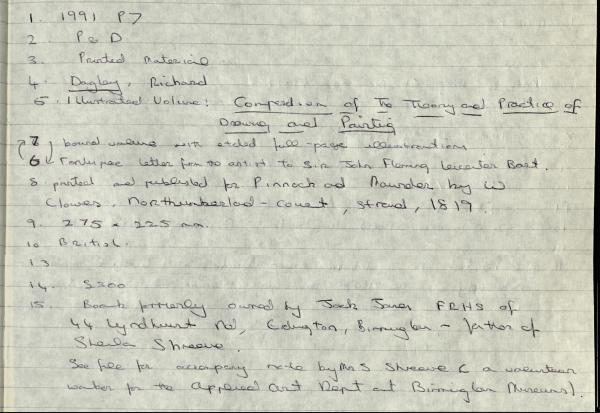 1. 1991 P7
2 P & D
3. Printed Material
4. Dagley, Richard
5. Illustrated Volume: Compendium of The Theory and Practice of
Drawing and Painting
7 bound volume with etched full-page illustrations
6 Fontispiece letter from the artist to Sir John Fleming Leicester Bart.
8 printed and published for Pinnock and Maunder by W
Clowes, Northumberland-court, Strand, 1819.
9. 275 x 225 mm.
10 British.
13
14. S200
15. Book formerly owned by Jack Jones FRHS of
44 Lyndhurst Rd, Erdington, Birmingham - father of
Sheila Shreeve.
See file for accompany note by Mrs Shreeve ( a volunteer
worker for the Applied Art Dept at Birmingham Museums).